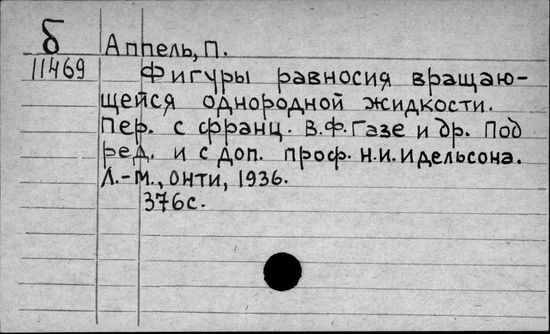 б
Аппель, П.
11469
Фигуры равносия вращаю-
щейся однородной жидкости.
Пер. с франц. В.Ф. Газе и др. Под
ред. и с доп. проф. Н.И. Идельсона.
Л.-М., ОНТИ, 1936.
376с.